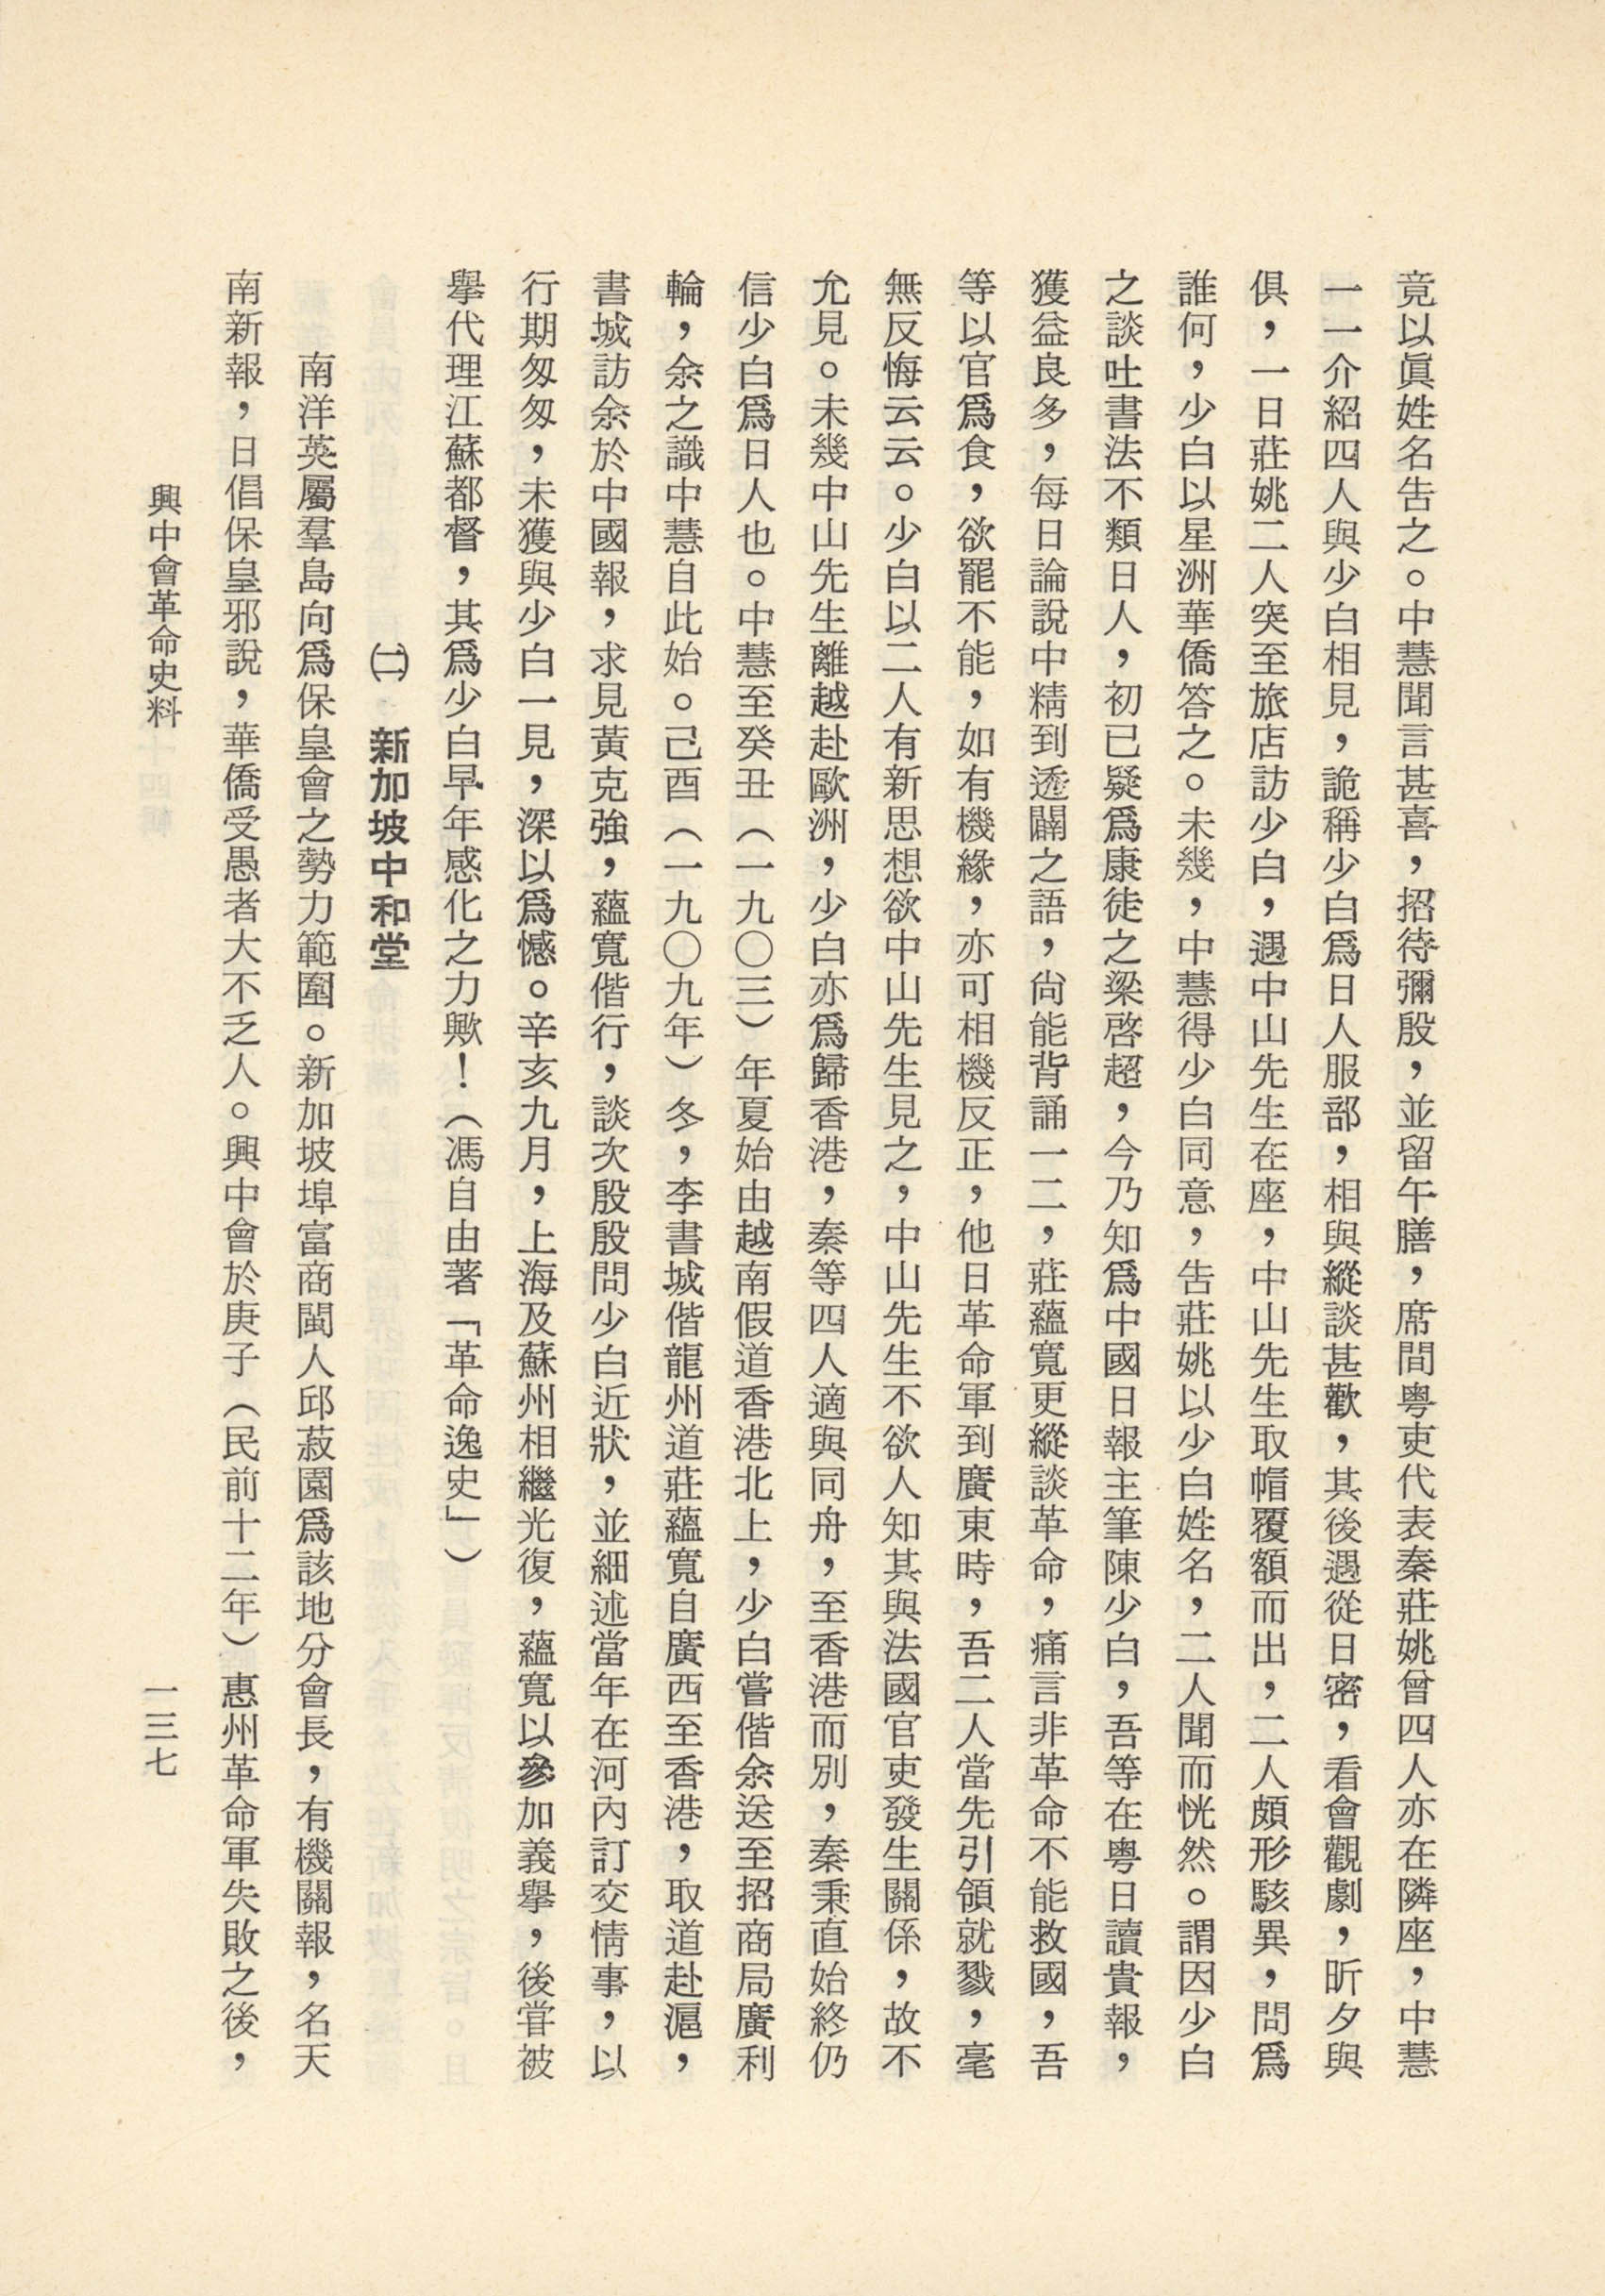 竟以眞姓名告之。中慧聞言甚喜，招待彌殷，並留午膳，席間粵吏代表秦莊姚曾四人亦在隣座，中慧
一一介紹四人與少白相見，詭稱少白爲日人服部，相與縱談甚歡，其後遇從日密，看會觀劇，昕夕與
俱，一日莊姚二人突至旅店訪少白，遇中山先生在座，中山先生取帽覆額而出，二人頗形駭異，問爲
誰何，少白以星洲華僑答之。未幾，中慧得少白同意，告莊姚以少白姓名，二人聞而恍然。謂因少白
之談吐書法不類日人，初已疑爲康徒之梁啓超，今乃知爲中國日報主筆陳少白，吾等在粵日讀貴報，
獲益良多，每日論說中精到透闢之語，尙能背誦一二，莊蘊寬更縱談革命，痛言非革命不能救國，吾
等以官爲食，欲罷不能，如有機緣，亦可相機反正，他日革命軍到廣東時，吾二人當先引領就戮，毫
無反悔云云。少白以二人有新思想欲中山先生見之，中山先生不欲人知其與法國官吏發生關係，故不
允見。未幾中山先生離越赴歐洲，少白亦爲歸香港，秦等四人適與同舟，至香港而別，秦秉直始終仍
信少白爲日人也。中慧至癸丑（一九〇三）年夏始由越南假道香港北上，少白嘗偕余送至招商局廣利
輪，余之識中慧自此始。己酉（一九〇九年）冬，李書城偕龍州道莊蘊寬自廣西至香港，取道赴滬，
書城訪余於中國報，求見黃克強，蘊寬偕行，談次殷殷問少白近狀，並細述當年在河內訂交情事，以
行期匆匆，未獲與少白一見，深以爲憾。辛亥九月，上海及蘇州相繼光復，蘊寬以參加義擧，後甞被
擧代理江蘇都督，其爲少白早年感化之力歟！（馮自由著「革命逸史」）
㈡　新加坡中和堂
南洋英屬羣島向爲保皇會之勢力範圍。新加坡埠富商閩人邱菽園爲該地分會長，有機關報，名天
南新報，日倡保皇邪說，華僑受愚者大不乏人。興中會於庚子（民前十二年）惠州革命軍失敗之後，
興中會革命史料
一三七